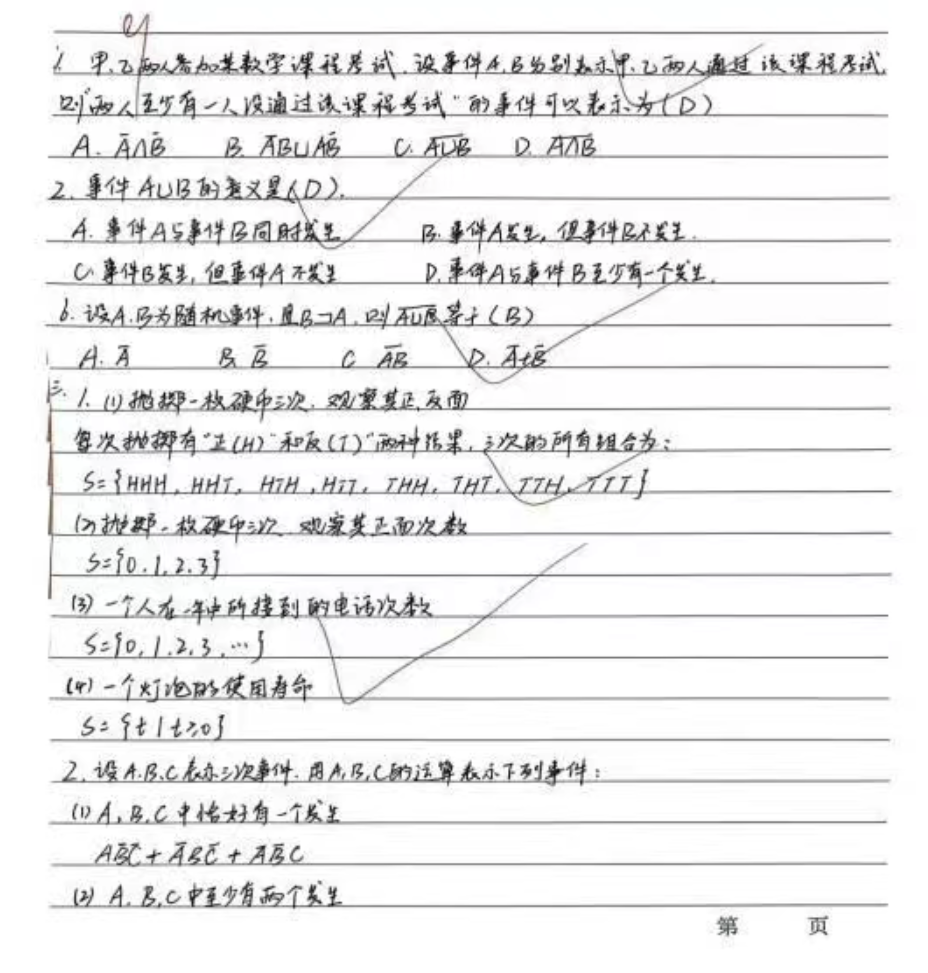 1. 甲、乙两人参加某数学课程考试,设事件A,B分别表示甲、乙两人通过该课程考试,
则"两人至少有一人没通过该课程考试"的事件可以表示为(D)
A. A̅∩B̅ B. A̅B∪AB̅ C. \overline{A∪B} D. \overline{A∩B}
2. 事件A∪B的意义是(D).
A. 事件A与事件B同时发生 B. 事件A发生, 但事件B不发生.
C. 事件B发生, 但事件A不发生 D. 事件A与事件B至少有一个发生.
6. 设A.B为随机事件,且B⊃A,则\overline{A∪B}等于(B)
A. A̅ B. B̅ C \overline{AB} D. A̅+B̅
三. 1. (1)抛掷一枚硬币三次,观察其正,反面
每次抛掷有"正(H)"和反(T)"两种结果,三次的所有组合为:
S={HHH, HHT, HTH, HTT, THH, THT, TTH, TTT}
(2)抛掷一枚硬币三次,观察其正面次数
S={0.1.2.3}
(3) 一个人在一年中所接到的电话次数
S={0,1.2,3,…}
(4) 一个灯泡的使用寿命
S={t|t≥0}
2. 设A.B.C表示三次事件.用A,B,C的运算表示下列事件:
(1) A,B,C中恰好有一个发生
AB̅C̅ + A̅BC̅ + A̅B̅C
(2) A,B,C中至少有两个发生
第 页